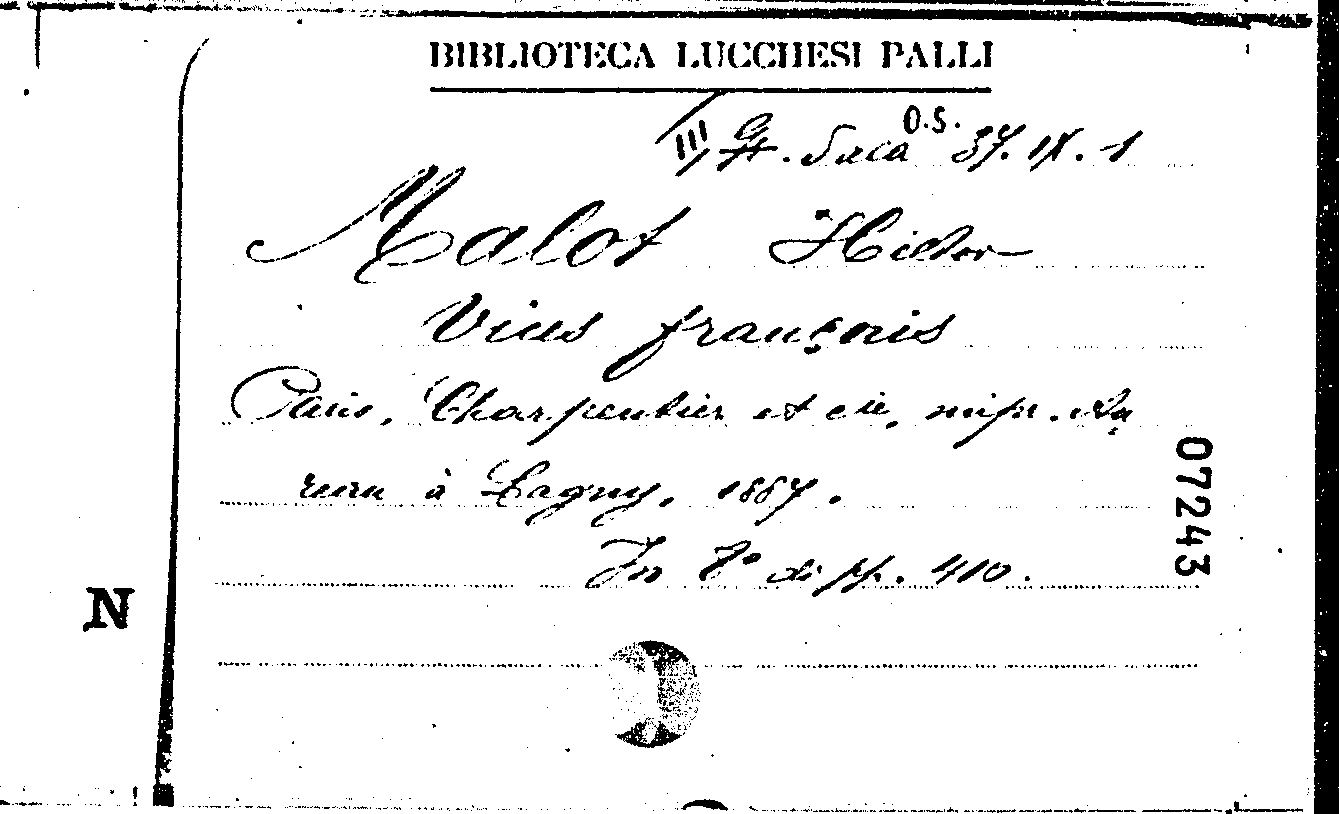 BIBLIOTECA LUCCHESI PALLI
O.S.
III Gr. Sala 37. IX. 1
Malot Hector
Vices français
Paris, Charpentier et cie, impr. Au
reau à Lagny, 1887.
In 8° di pp. 410.
07243
N